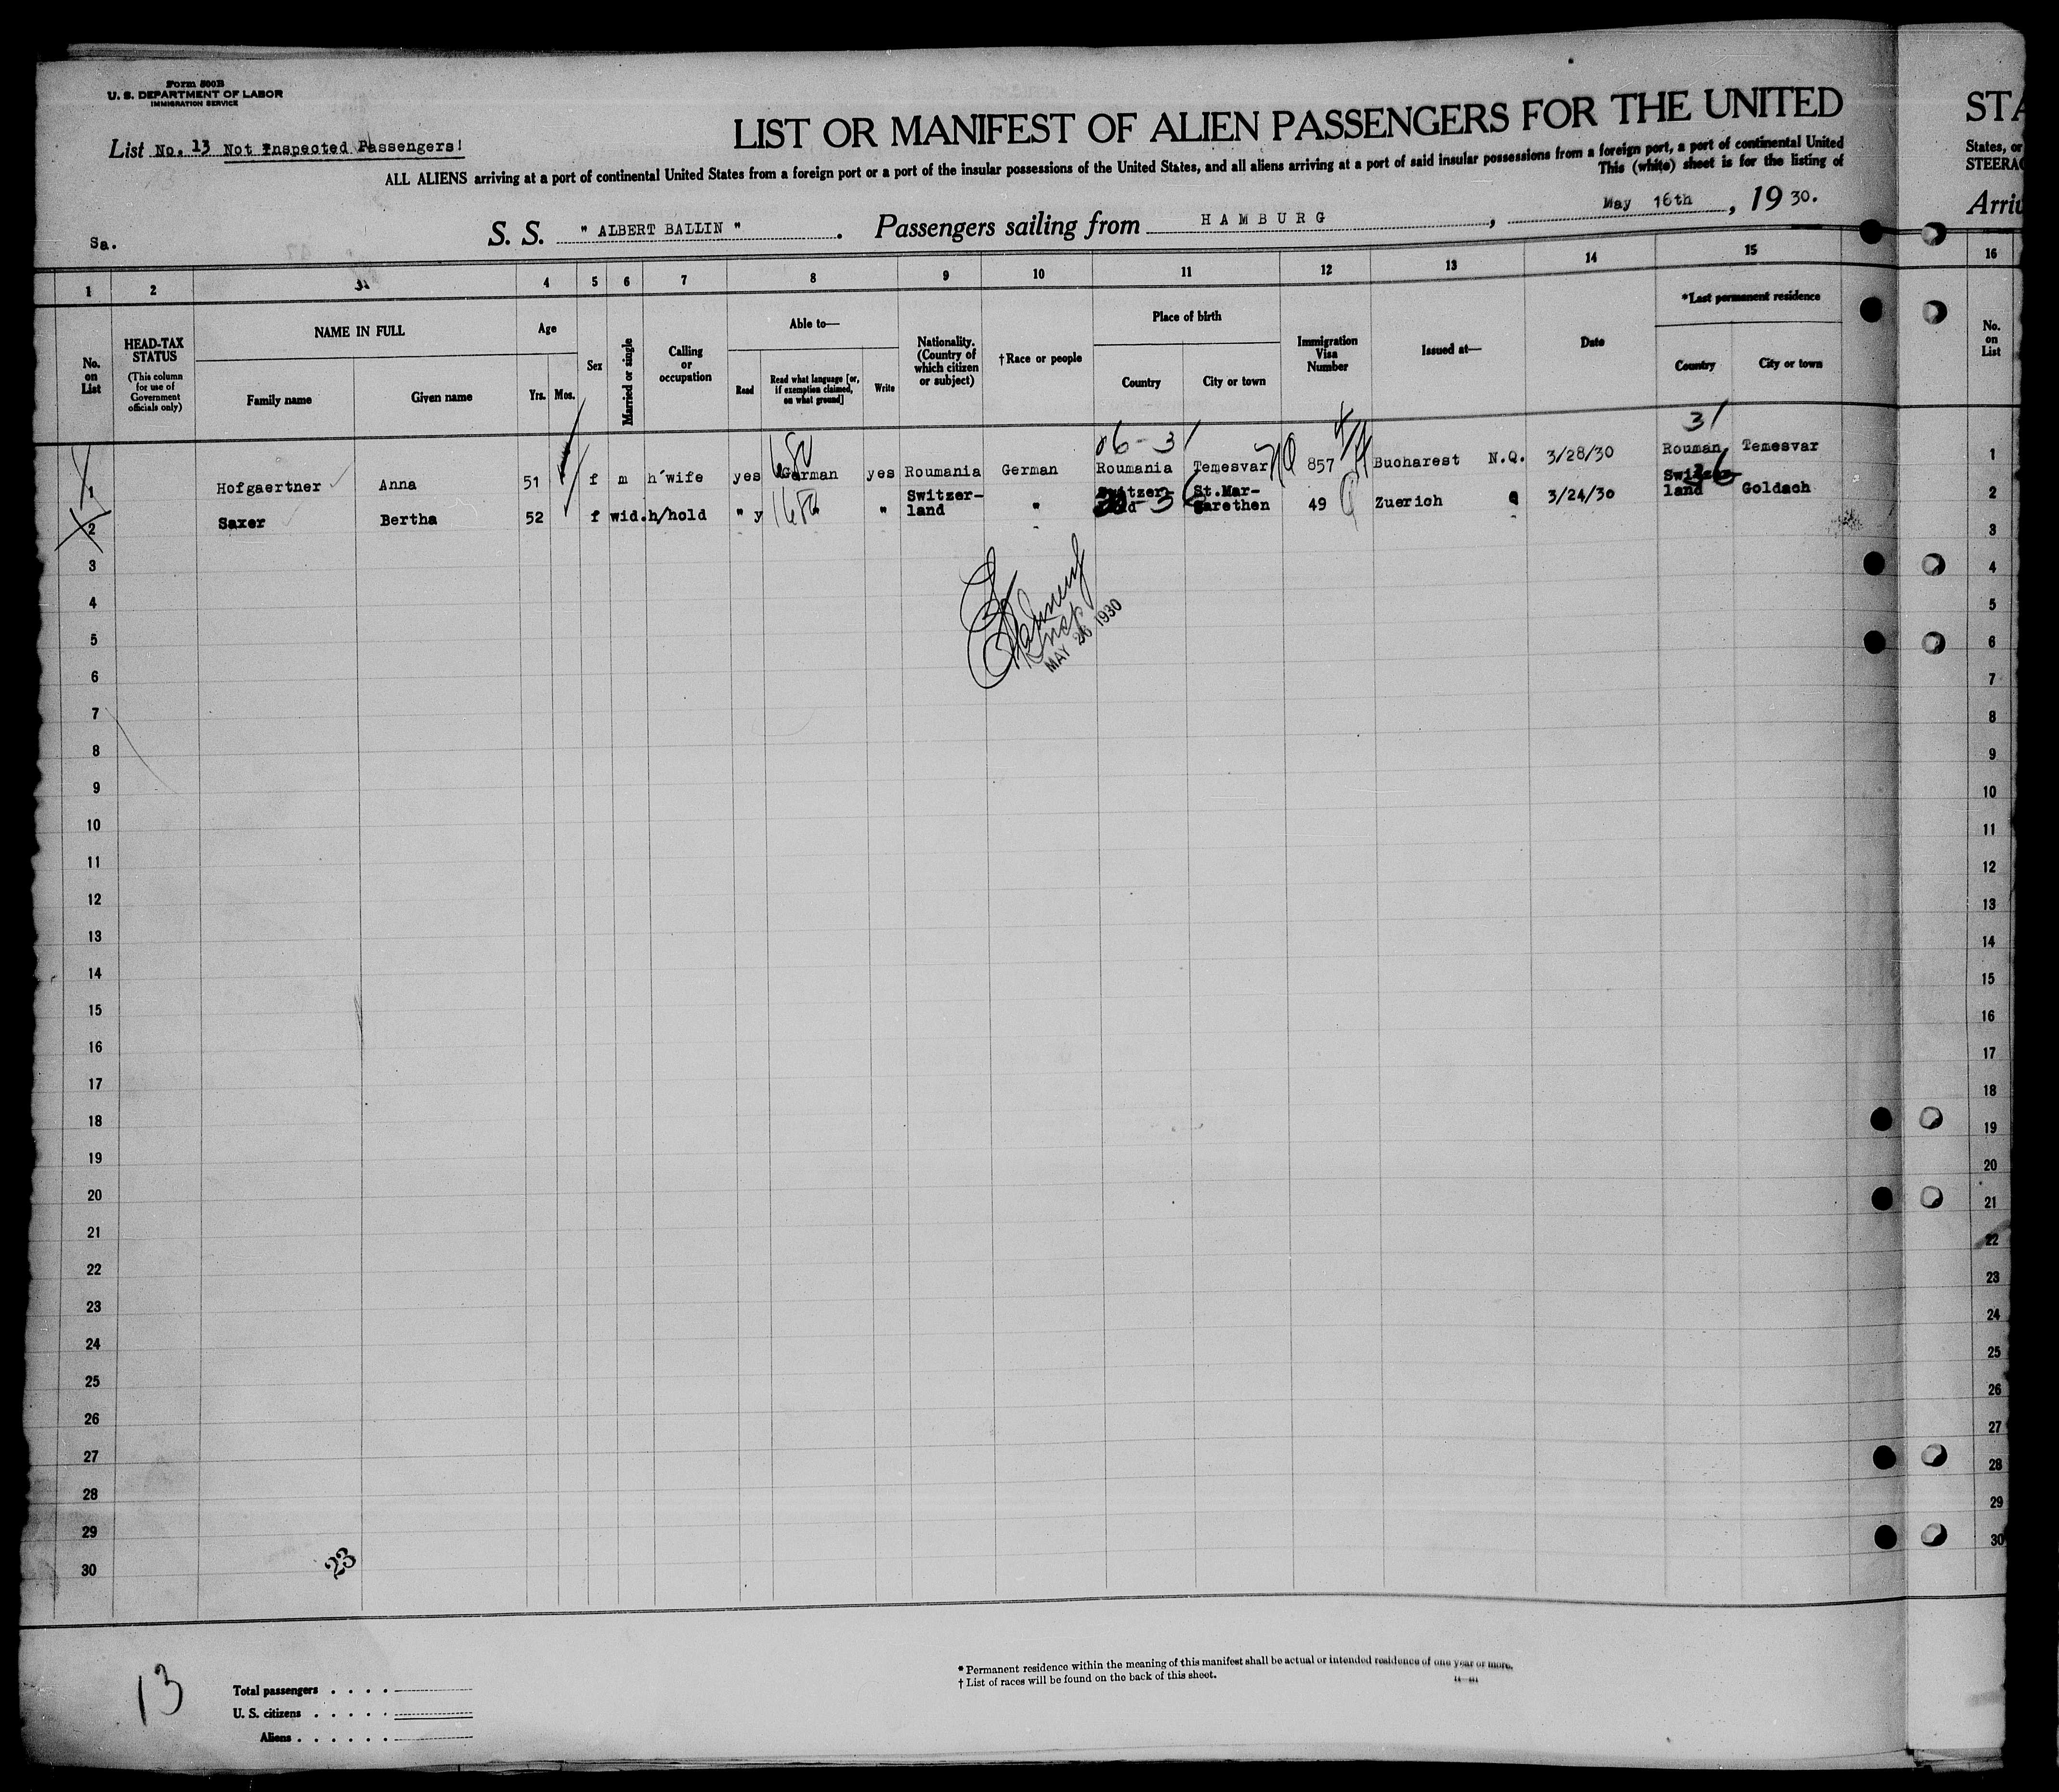 Form 500B
U. S. DEPARTMENT OF LABOR
IMMIGRATION SERVICE
List No. 13 Not Inspected Passengers!
LIST OR MANIFEST OF ALIEN PASSENGERS FOR THE UNITED
ALL ALIENS arriving at a port of continental United States from a foreign port or a port of the insular possessions of the United States, and all aliens arriving at a port of said insular possessions from a foreign port, a port of continental United
This (white) sheet is for the listing of
Sa.
S. S. " ALBERT BALLIN ". Passengers sailing from HAMBURG, May 16th, 19 30.
STA
States, or
STEERAG
Arriv
1 2 3 4 5 6 7 8 9 10 11 12 13 14 15 16
No. on List
HEAD-TAX STATUS (This column for use of Government officials only)
NAME IN FULL
Family name Given name
Age
Yrs. Mos.
Sex
Married or single
Calling or occupation
Able to—
Read
Read what language [or, if exemption claimed, on what ground]
Write
Nationality. (Country of which citizen or subject)
†Race or people
Place of birth
Country City or town
Immigration Visa Number
Issued at—
Date
*Last permanent residence
Country City or town
No. on List
06-31
31
1 Hofgaertner Anna 51 f m h'wife yes German yes Roumania German Roumania Temesvar 857 Bucharest N.Q. 3/28/30 Rouman. Temesvar 1
2 Saxer Bertha 52 f wid. h/hold " y " Switzer-land " Switzer-land St.Mar-garethen 49 Zuerich Q 3/24/30 Switzer-land Goldach 2
36
Insp
MAY 26 1930
3 3
4 4
5 5
6 6
7 7
8 8
9 9
10 10
11 11
12 12
13 13
14 14
15 15
16 16
17 17
18 18
19 19
20 20
21 21
22 22
23 23
24 24
25 25
26 26
27 27
28 28
29 29
30 30
23
13
Total passengers . . . .
U. S. citizens . . . . .
Aliens . . . . . .
* Permanent residence within the meaning of this manifest shall be actual or intended residence of one year or more.
† List of races will be found on the back of this sheet.